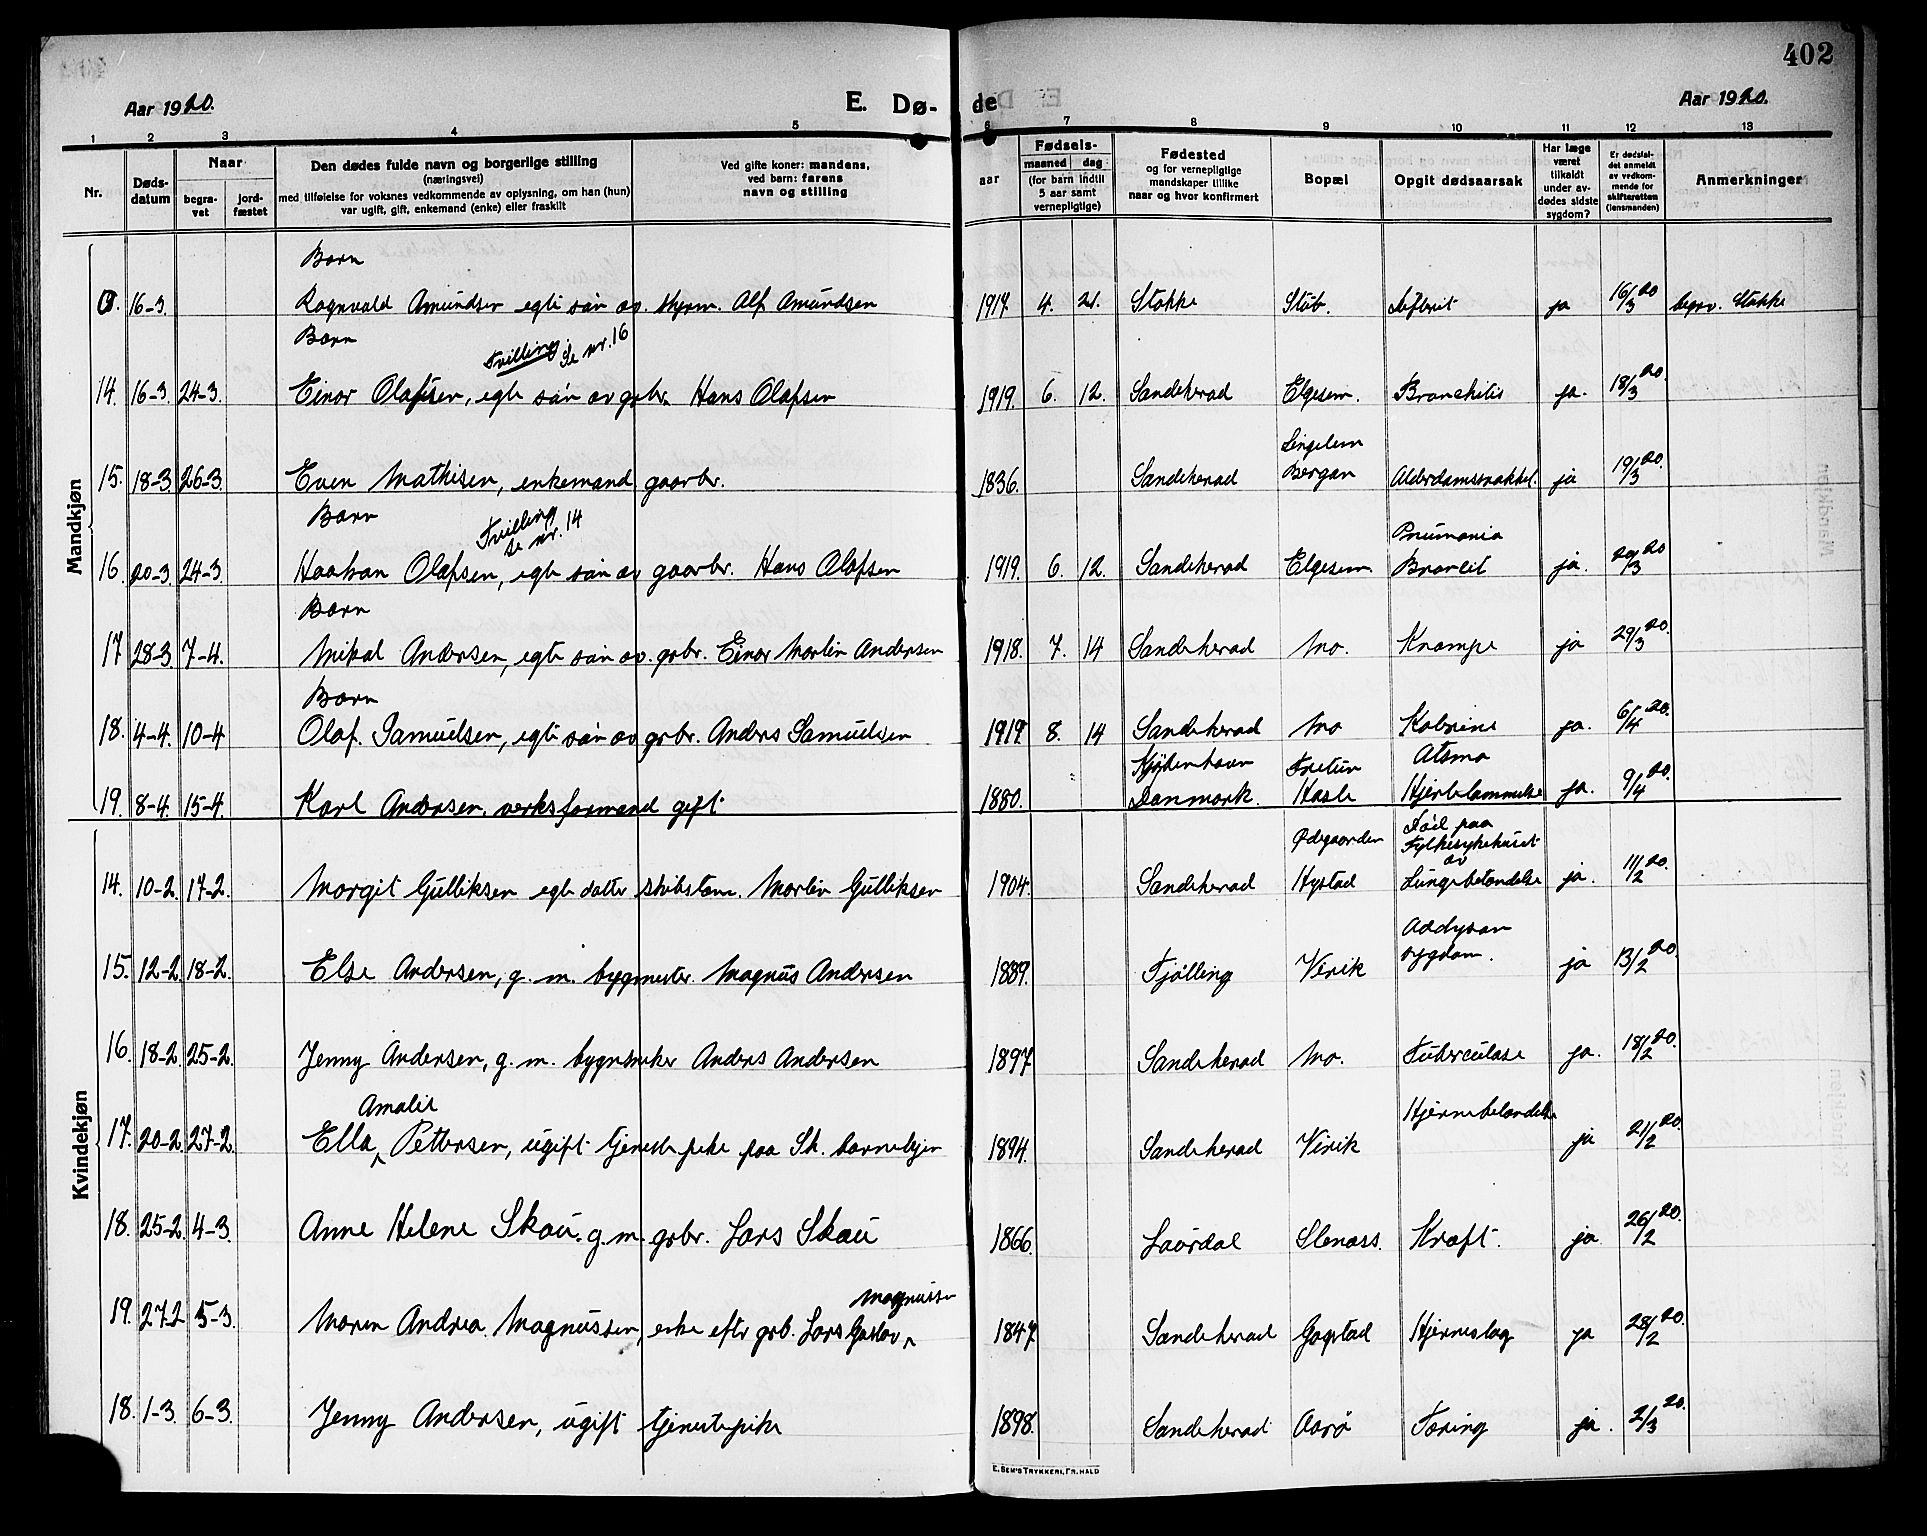 402
Aar 1920.
E. Dø-
de
Aar 1920.
1 2 3 4 5 6 7 8 9 10 11 12 13
Nr.
Døds-
datum
Naar
begra-
vet
jord-
fæstet
Den dødes fulde navn og borgerlige stilling
(næringsvei)
med tilføielse for voksnes vedkommende av oplysning, om han (hun)
var ugift, gift, enkemand (enke) eller fraskilt
Ved gifte koner: mandens,
ved barn: farens
navn og stilling
Fødsels-
aar
maaned
dag
(for barn indtil
5 aar samt
vernepligtige)
Fødested
og for vernepligtige
mandskaper tillike
naar og hvor konfirmert
Bopæl
Opgit dødsaarsak
Har læge
været
tilkaldt
under av-
dødes sidste
sygdom?
Er dødsfal-
det anmeldt
av vedkom-
mende for
skifteretten
(lensmanden)
Anmerkninger
Mandkjøn
Barn
0. 16-3. Ragnvald Amundsen egte søn av Alf Amundsen 1917. 4. 21. Stokke Stub. ja 16/3 20 begrv. Stokke
Barn
Tvilling Se nr. 16
14. 16-3. 24-3. Einar Olafsen, egte søn av gbr. Hans Olafsen 1919. 6. 12. Sandeherad Elgesem. Bronchitis ja. 18/3 20.
Lingelem
15. 18-3. 26-3. Even Mathisen, enkemand gaarbr. 1836. Sandeherad Bergan Alderdomssvakhet. ja 19/3 20.
Barn
Tvilling
se nr. 14
Pneumonia
16. 20-3. 24-3. Haakan Olafsen, egte søn av gaarbr. Hans Olafsen 1919. 6. 12. Sandeherad Elgesem ja. 20/3 20
Barn
17 28-3. 7-4. Mikal Andersen, egte søn av. grbr. Einar Martin Andersen 1918. 7. 14 Sandeherad Mo. Krampe ja 29/3 20.
Barn
18. 4-4. 10-4 Olaf. Samuelsen, egte søn av grbr. Anders Samuelsen 1919. 8. 14 Sandeherad Mo ja. 6/4 20.
Kjøbenhavn Fretun Atsma
19. 8-4. 15-4. Karl Andersen. verksformand gift 1880. Danmark. Hasle Hjertelammelse ja. 9/4 20.
Kvindekjøn
Ødegaarden Død paa
Fylkesykehuset
av
14. 10-2. 17-2. Margit Gulliksen egte datter skibstøm. Martin Gulliksen 1904. Sandeherad Hystad Lungebetændelse ja. 11/2 20.
Addyson
15. 12-2 18-2. Else Andersen, g. m. bygmester. Magnus Andersen 1889. Tjølling Virik sygdom. ja 13/2 20.
16. 18-2. 25-2. Jenny Andersen, g. m. Anders Andersen 1897 Sandeherad Mo. Tuberculose ja. 18/2 20.
Amalie
Hjernebetændelse
17. 20-2. 27-2. Ella Pettersen, ugift tjenestepike paa 1894. Sandeherad Virik ja 21/2 20.
18. 25-2. 4-3. Anne Helene Skau. g. m. grbr. Lars Skau 1866. Laurdal Slenass. Kræft. ja 26/2 20.
Magnussen
19. 27-2 5-3. Maren Andrea Magnussen, enke efter grb. Lars Gustav 1847 Sandeherad Gogstad Hjerneslag ja 28/2 20.
18. 1-3. 6-3. Jenny Andersen, ugift tjenestepike 1898. Sandeherad Aarø Tæring ja. 2/3 20.
E. SEM'S TRYKKERI, FR. HALD